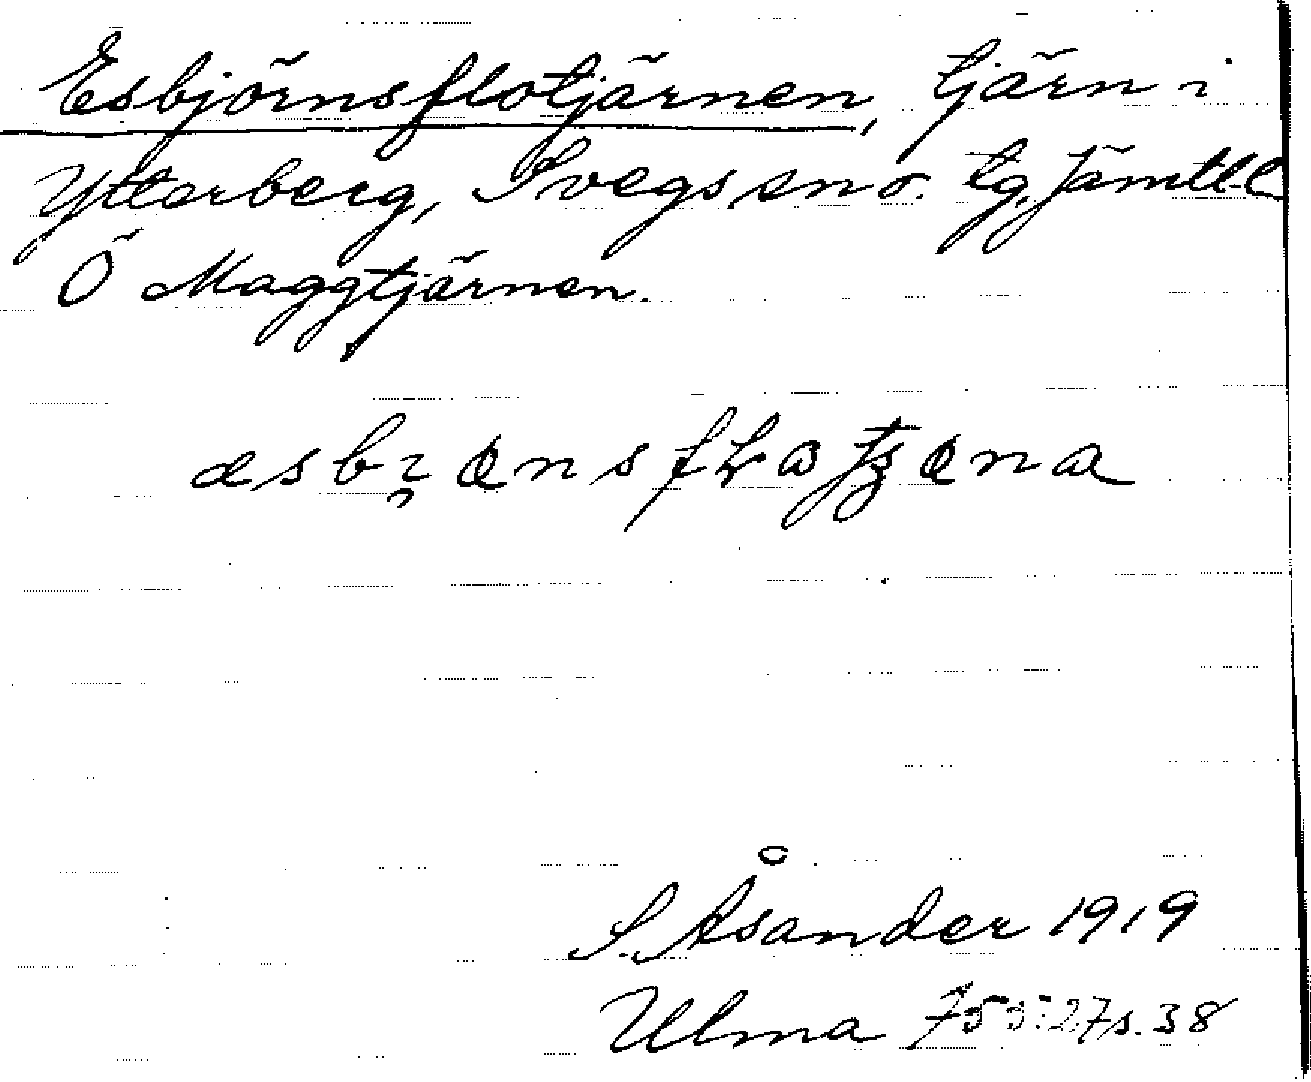 Esbjörnsflotjärnen, tjärn i
Ytterberg, Svegs sn o. tg. Jämtl. l
Ö Maggtjärnen.
S. Åsander 1919
Ulma 755:27 s. 38